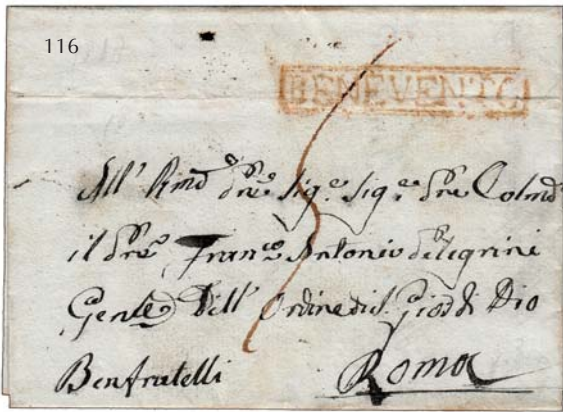 116
BENEVENTO
All' Rmd Pre Sigre Sigre Pre Colmo
il Pre Franco Antonio Pelegrini
Genle Dell' Ordine di S. Gio: di Dio
Benfratelli
Roma